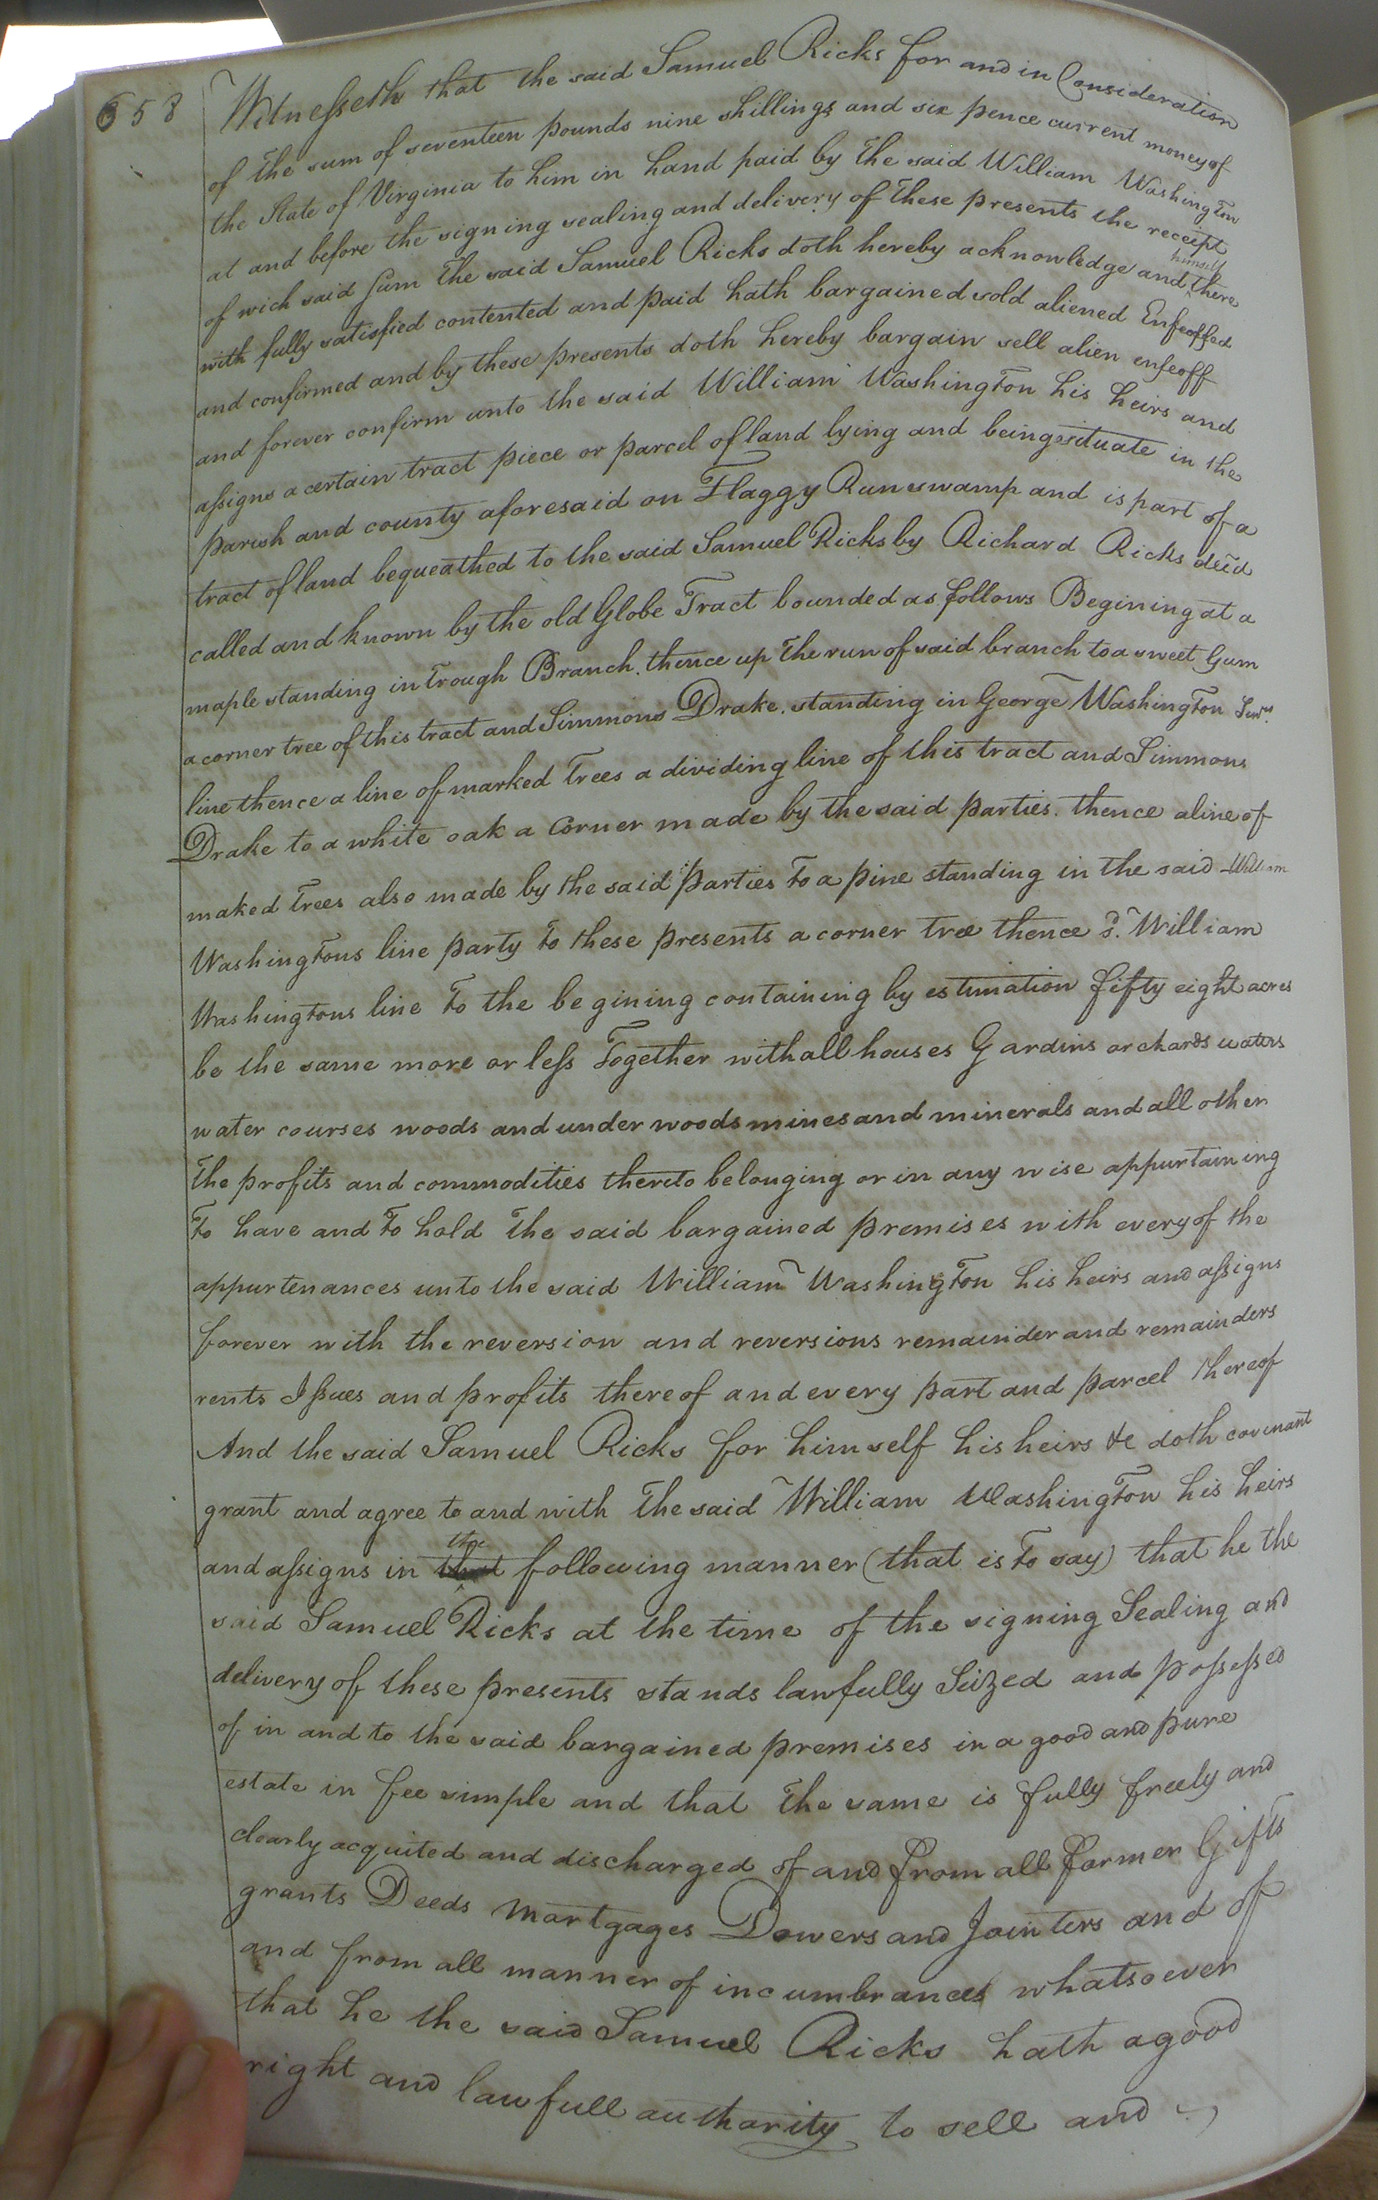 658
Witnesseth that the said Samuel Ricks for and in Consideration
of the sum of seventeen pounds nine shillings and six pence current money of
the State of Virginia to him in hand paid by the said William Washington
at and before the signing sealing and delivery of these presents the receipt
of wich said sum the said Samuel Ricks doth hereby acknowledge and himself there
with fully satisfied contented and paid hath bargained sold aliened Enfeoffed
and confirmed and by these presents doth hereby bargain sell alien enfeoff
and forever confirm unto the said William Washington his heirs and
assigns a certain tract piece or parcel of land lying and being situate in the
parish and county aforesaid on Flaggy Run swamp and is part of a
tract of land bequeathed to the said Samuel Ricks by Richard Ricks decd
called and known by the old Globe Tract bounded as follows Begining at a
maple standing in trough Branch. thence up the run of said branch to a sweet Gum
a corner tree of this tract and Simmons Drake. standing in George Washington Senrs
line thence a line of marked Trees a dividing line of this tract and Simmons
Drake to a white oak a Corner made by the said parties. thence a line of
maked Trees also made by the said parties to a pine standing in the said William
Washingtons line party to these presents a corner tree thence sd. William
Washingtons line to the begining containing by estimation fifty eight acres
be the same more or less Together with all houses Gardins orchards waters
water courses woods and under woods mines and minerals and all other
the profits and commodities thereto belonging or in any wise appurtaining
To have and To hold the said bargained premises with every of the
appurtenances unto the said William Washington his heirs and assigns
forever with the reversion and reversions remainder and remainders
rents Issues and profits thereof and every part and parcel thereof
And the said Samuel Ricks for himself his heirs &c doth covenant
grant and agree to and with the said William Washington his heirs
and assigns in the following manner (that is to say) that he the
said Samuel Ricks at the time of the signing Sealing and
delivery of these presents stands lawfully Seized and possessed
of in and to the said bargained premises in a good and pure
estate in fee simple and that the same is fully freely and
clearly acquited and discharged of and from all former Gifts
grants Deeds Mortgages Dowers and Jointers and of
and from all manner of incumbrances whatsoever
that he the said Samuel Ricks hath a good
right and lawfull authority to sell and